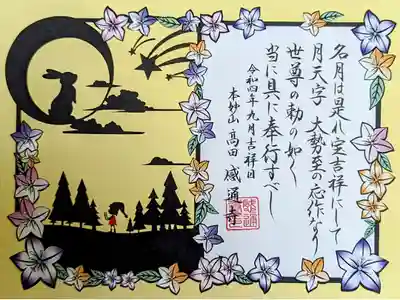 名月は是れ宝吉祥にして
月天子 大勢至の応作なり
世尊の勅の如く
当に具に奉行すべし
令和四年九月吉祥日
本妙山 高田 感通寺
感通寺